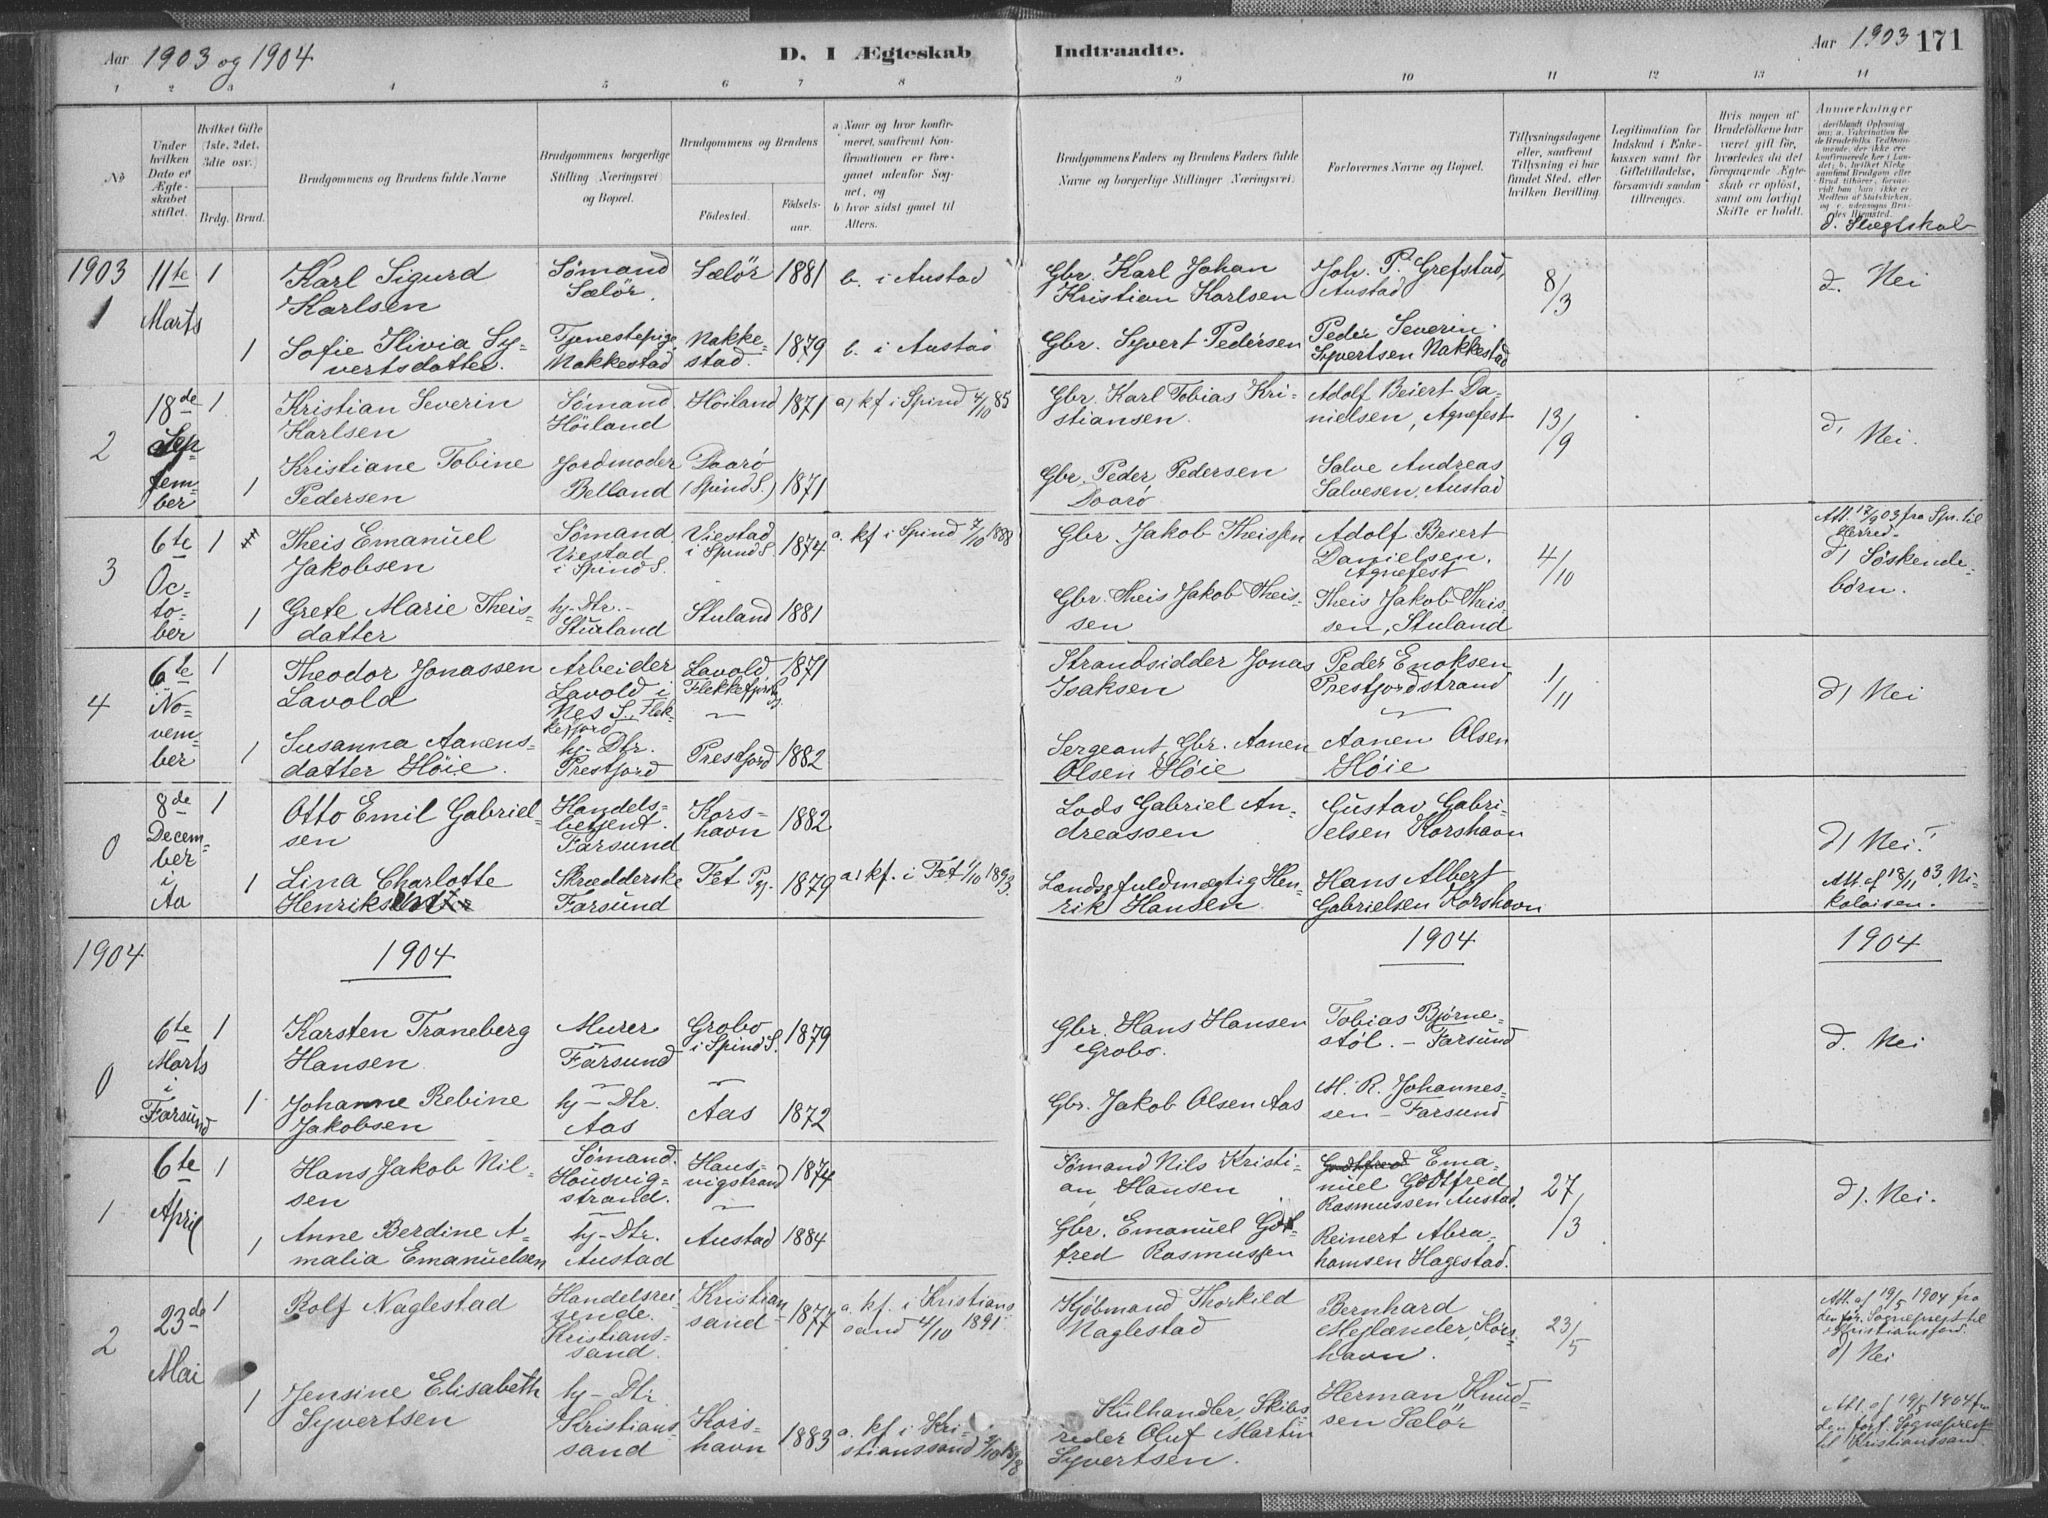 Aar 1903 og 1904
D. I Ægteskab Indtraadte.
Aar 1903 171
1 2 3 4 5 6 7 8 9 10 11 12 13 14
No
Under hvilken Dato er Ægteskabet stiftet.
Hvilket Gifte (1ste, 2det, 3die osv.)
Brdg. Brud.
Brudgommens og Brudens fulde Navne
Brudgommens borgerlige Stilling (Næringsvei) og Bopæl.
Brudgommens og Brudens
Fødested. Fødselsaar.
a) Naar og hvor konfirmeret, saafremt Konfirmationen er foregaaet udenfor Sognet, og
b. hvor sidst gaaet til Alters.
Brudgommens Faders og Brudens Faders fulde Navne og borgerlige Stillinger (Næringsvei).
Forlovernes Navne og Bopæl.
Tillysningsdagene eller, saafremt Tillysning ei har fundet Sted, efter hvilken Bevilling.
Legitimation for Indskud i Enkekassen samt for Giftetilladelse, forsaavidt saadan tiltrænges.
Hvis nogen af Brudefolkene har været gift før, hvorledes da det foregaaende Ægteskab er opløst, samt om lovligt Skifte er holdt.
Anmærkninger
d. Slægtskab
1903
1
11te Marts
1
Karl Sigurd
Karlsen
Sømand
Sælør.
Sælør
1881
b. i Austad
Gbr. Karl Johan
Kristian Karlsen
Joh. P. Grefstad,
Austad
8/3
d. Nei
1
Sofie Ilivia Sy-
vertsdatter.
Tjenestepige
Nakkestad
Nakke-
stad.
1879
b. i Austad
Gbr. Syvert Pedersen
Peder Severin
Syvertsen Nakkestad
2
18de Sep
tem-
ber
1
Kristian Severin
Karlsen
Sømand
Höiland
Höiland
1871
a) kf i Spind 4/10 85
Gbr. Karl Tobias Kri-
stiansen.
Adolf Beiert Da-
nielsen, Agnefest
13/9
d, Nei.
1
Kristiane Tobine
Pedersen
Jordmoder
Belland
Daarø
(Spind S.)
1871
Gbr. Peder Pedersen
Daarø
Salve Andreas
Salvesen, Austad
3
6te
Oc-
to-
ber
1
Theis Emanuel
Jakobsen
Sömand
Viestad
i Spind S.
Viestad
i Spind S.
1874
a. kf i Spind 7/10 1888
Gbr. Jakob Theissen
Adolf Beiert
Danielsen.
Agnefest
4/10
Att. 17/9 03 fra Spr. til
Herred.
d) Söskende-
børn.
1
Grete Marie Theis-
datter
hj-Dtr.
Stuland
Stuland
1881
Gbr. Theis Jakob Theis-
sen
Theis Jakob Theis-
sen, Stuland
4
6te
No-
vem-
ber
1
Theodor Jonassen
Lavold
Arbeider
Lavold i
Nes S. Flek-
kefjord
Lavold
Flekkefjord
1871
Strandsidder Jonas
Isaksen
Peder Enoksen
Prestfjordstrand
1/11
d) Nei
1
Susanna Aanens-
datter Høie.
hj-Dtr.
Prestfjord
Prestfjord
1882
Sergeant, Gbr. Aanen
Olsen Høie
Aanen Olsen
Høie
0
8de
Decem-
ber
i
Aa
1
Otto Emil Gabriel-
sen
Handels-
betjent.
Farsund
Kors-
havn
1882
Lods Gabriel An-
dreassen
Gustav Gabri-
elsen Korshavn
d) Nei.
1
Lina Charlotte
Henriksen
Skrædderske
Farsund
Fet Pgj.
1879
a) kf. i Fet 1/10 1893.
Landsfuldmægtig Hen-
rik Hansen
Hans Albert
Gabrielsen Korshavn
Att. af 18/11 03. Ni-
kolaisen.
1904
1904
1904
1904
0
6te
Marts
i
Farsund
1
Karsten Traneberg
Hansen.
Murer
Farsund
Grobo
i Spind S.
1879
Gbr. Hans Hansen
Grobo.
Tobias Bjørne-
støl. - Farsund
d. Nei
1
Johanne Rebine
Jakobsen
hj-Dtr.
Aas
Aas
1872
Gbr. Jakob Olsen Aas
M. R. Johannes-
sen - Farsund
1
6te
April
1
Hans Jakob Nil-
sen
Sømand.
Housvig-
strand.
Haus-
vigstrand
1874
Sømand Nils Kristi-
an Hansen
Ema-
nuel Godtfred
Rasmussen Austad.
27/3
d). Nei.
1
Anne Berdine A-
malia Emanuelsen
hj-Dtr.
Austad
Austad
1884
Gbr. Emanuel God-
fred Rasmussen
Reinert Abra-
hamsen Hagestad.
2
23de
Mai
1
Rolf Naglestad
Handelsrei-
sende.
Kristians-
sand.
Kristian
sand
1877
a. kf. i Kristians
sand 4/10 1891.
Kjøbmand Thorkild
Naglestad
Bernhard
Mejlænder, Kors-
havn.
23/5
Att. af 19/5 1904 fra
den for. Sogneprest til
Kristianssand.
d) Nei
1
Jensine Elisabeth
Syvertsen
hj-Dtr
Kristians-
sand
Kors-
havn
1883
a. kf. i Kri-
stianssand 2/10 1898
Kulhandler, Skibs-
reder Oluf Martin
Syvertsen.
Herman Knud-
sen Sælör
Att. af 19/5 1904 fra
den fort. Sogneprest
til Kristianssand.